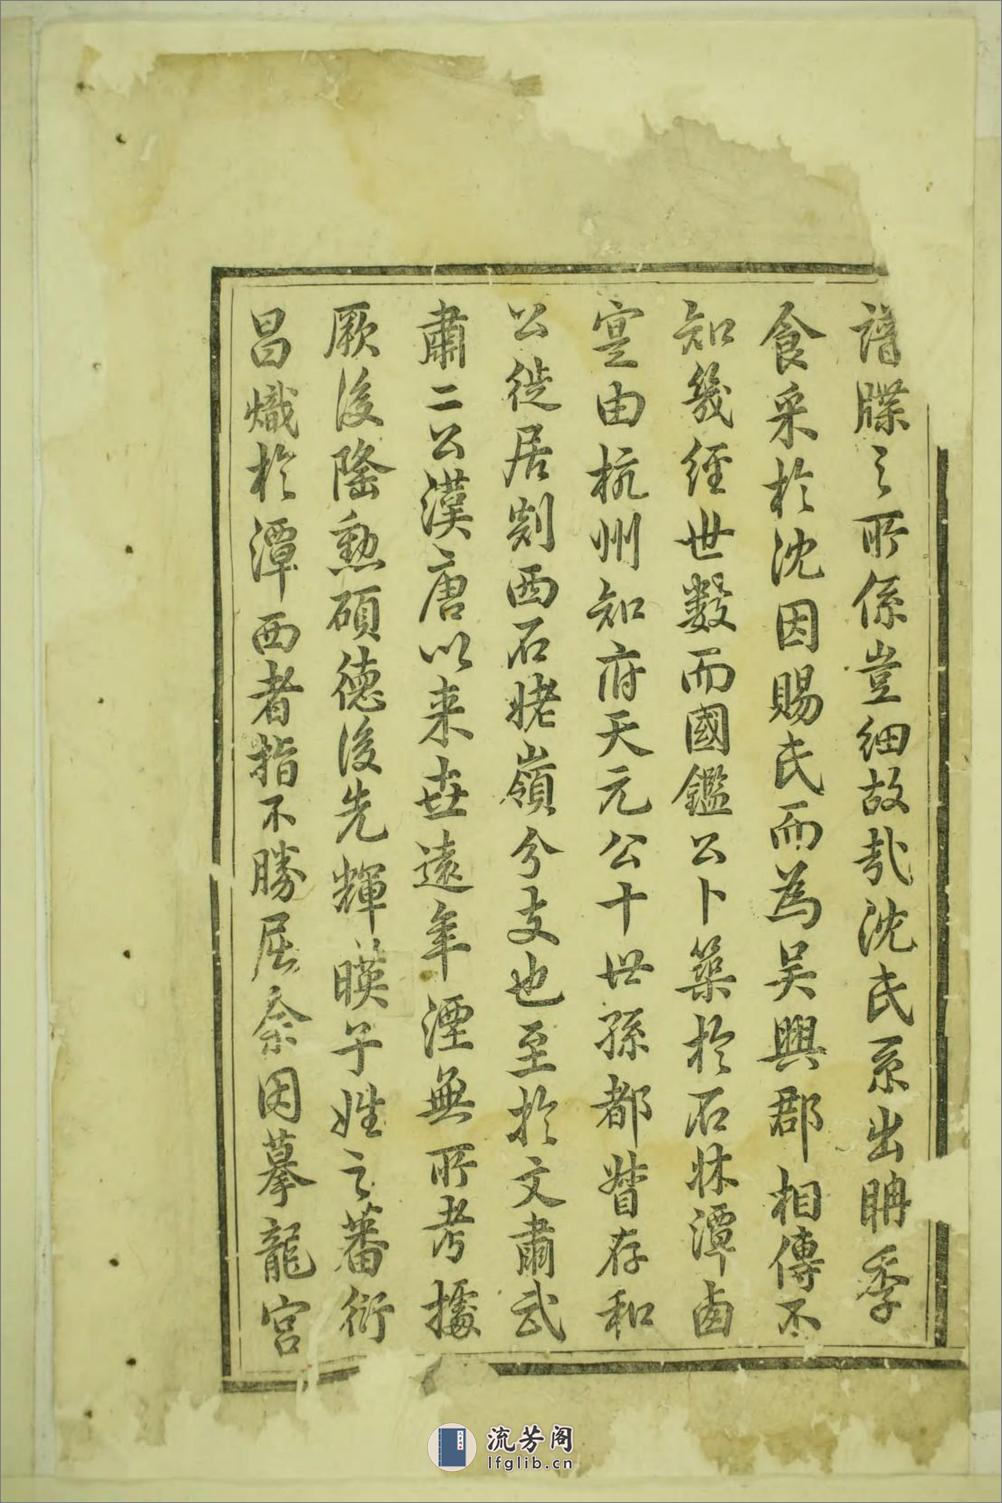 譜牒之所係豈細故哉沈氏系出聃季
食采於沈因賜氏而為吳興郡相傳不
知幾經世數而國鑑公卜築於石牀潭鹵
寔由杭州知府天元公十世孫都督存和
公徙居剡西石姥嶺分支也至於文肅武
肅二公漢唐以来世遠年湮無所考據
厥後隆勲碩德後先輝暎子姓之蕃衍
昌熾於潭西者指不勝屈奈因摹龍宮
流芳阁
lfglib.cn